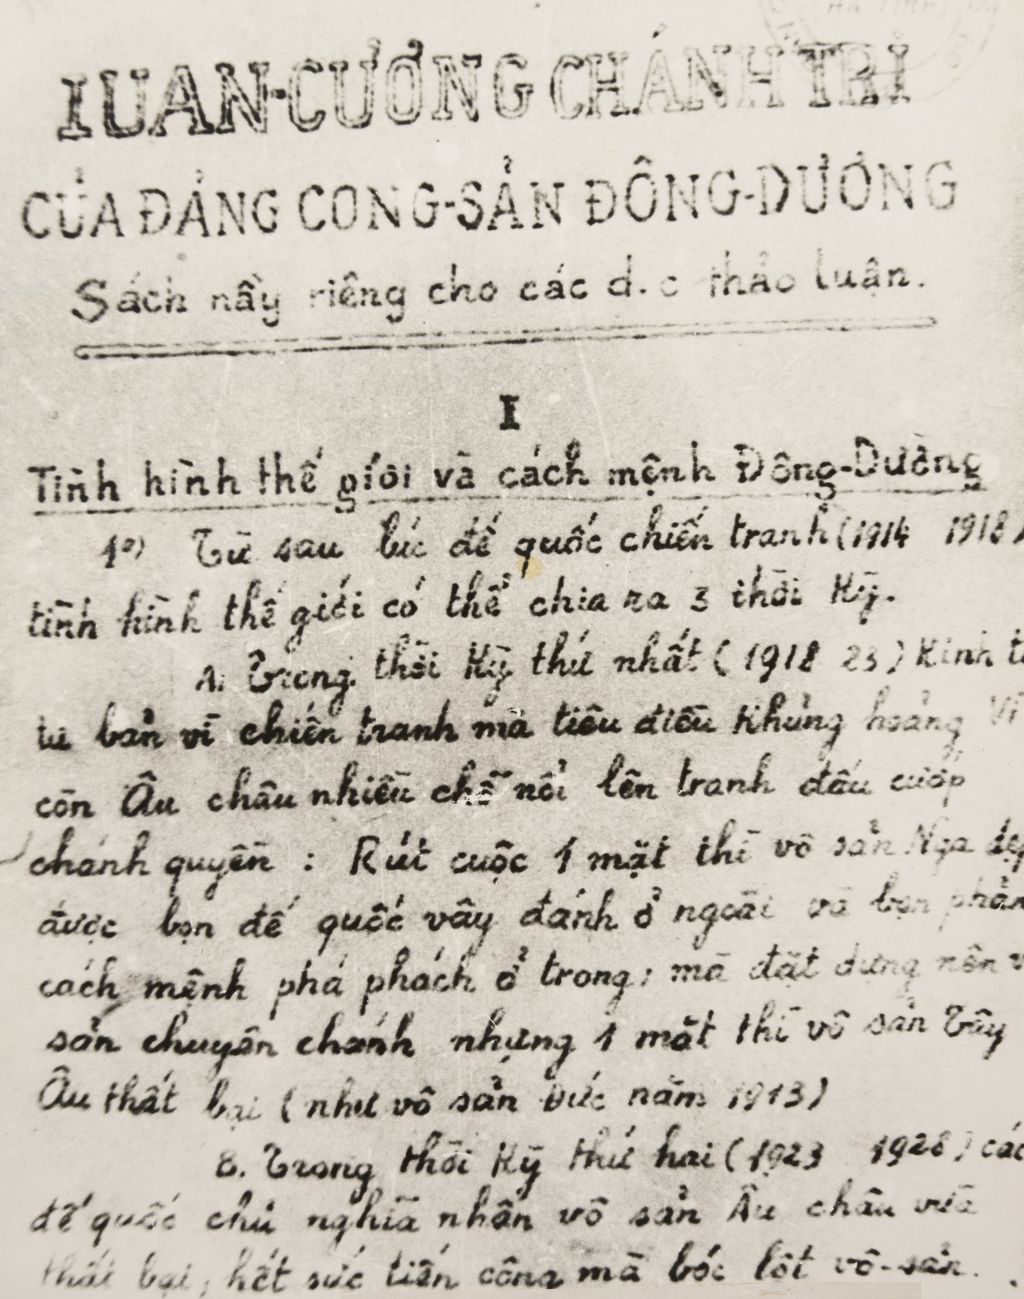 LUẬN-CƯƠNG CHÁNH TRỊ
CỦA ĐẢNG CỘNG-SẢN ĐÔNG-DƯƠNG
Sách nầy riêng cho các đ.c thảo luận.
I
Tình hình thế giới và cách mệnh Đông-Dương
1º) Từ sau lúc đế quốc chiến tranh (1914 1918)
tình hình thế giới có thể chia ra 3 thời kỳ.
A. Trong thời kỳ thứ nhất (1918 23) kinh
tư bản vì chiến tranh mà tiêu điều khủng hoảng Vì
còn Âu châu nhiều chỗ nổi lên tranh đấu cướp
chánh quyền : Rút cuộc 1 mặt thì vô sản Nga dẹp
được bọn đế quốc vây đánh ở ngoài và bọn phản
cách mệnh phá phách ở trong; mà đặt dựng nên
sản chuyên chánh nhưng 1 mặt thì vô sản Tây
Âu thất bại (như vô sản Đức năm 1913)
B. Trong thời kỳ thứ hai (1923 1928) các
đế quốc chủ nghĩa nhân vô sản Âu châu vừa
thất bại, hết sức tiến công mà bóc lột vô-sản.